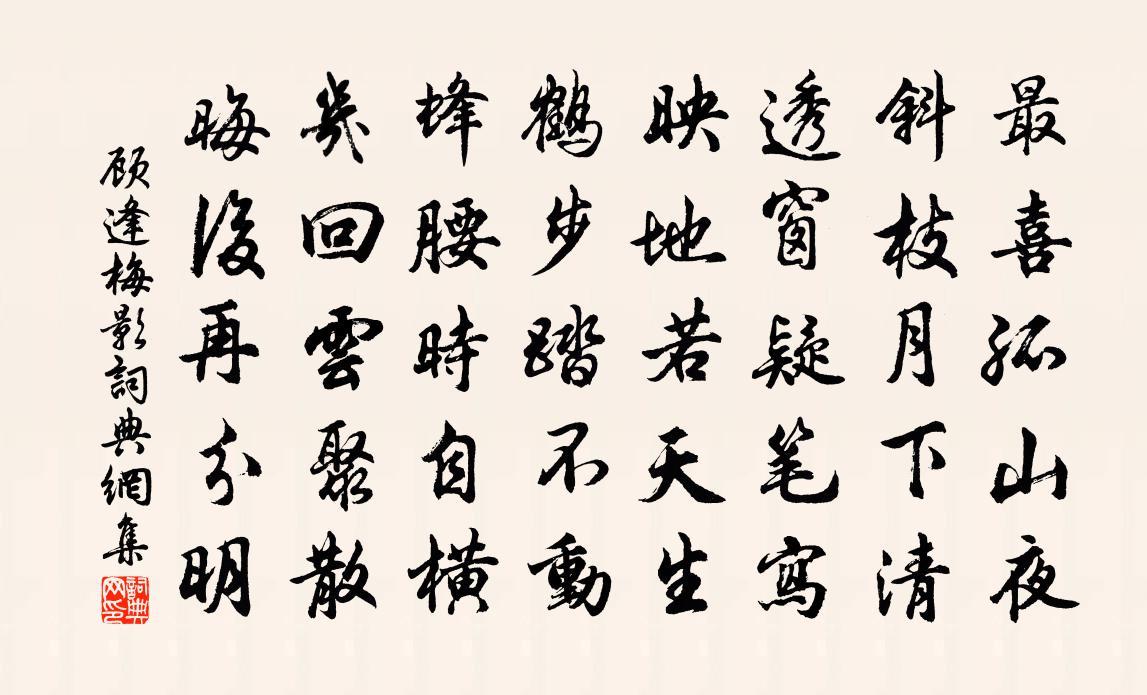 最喜孤山夜
斜枝月下清
透窗疑笔寫
映地若天生
鶴步踏不動
蜂腰時自橫
幾回雲聚散
晦後再分明
顾逢梅影詞典網集
詞典网印